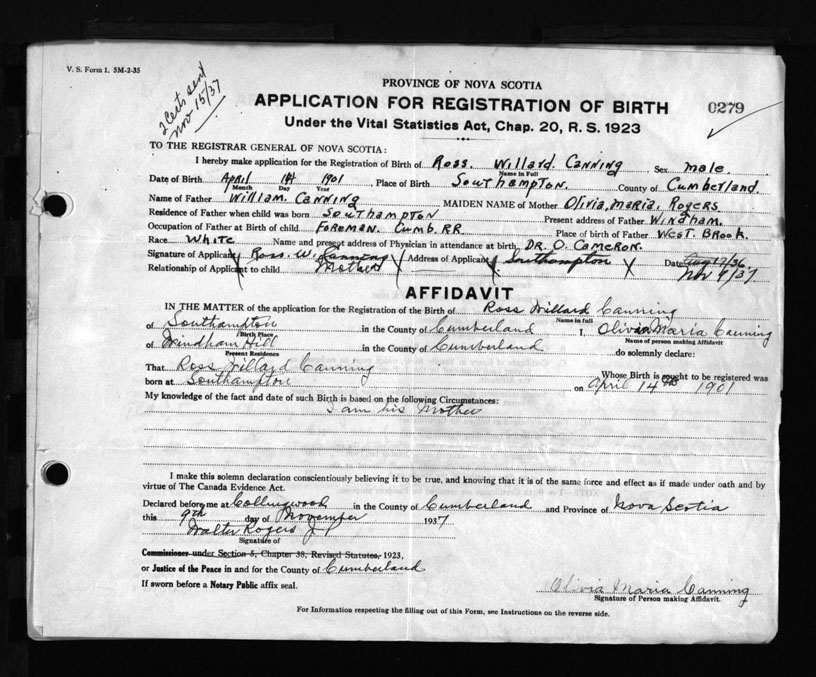 V. S. Form 1. 5M-2-35
2 Certs sent
Nov 15/37
PROVINCE OF NOVA SCOTIA
APPLICATION FOR REGISTRATION OF BIRTH
0279
Under the Vital Statistics Act, Chap. 20, R. S. 1923
TO THE REGISTRAR GENERAL OF NOVA SCOTIA:
I hereby make application for the Registration of Birth of Ross. Willard. Canning Sex male.
Name in Full
Date of Birth April 1901, Place of Birth Southampton. County of Cumberland.
Month Day Year
Name of Father William. Canning MAIDEN NAME of Mother Olivia, Maria, Rogers
Residence of Father when child was born Southampton Present address of Father Windham.
Occupation of Father at Birth of child Foreman. Cumb. RR. Place of birth of Father West Brook.
Race White Name and present address of Physician in attendance at birth Dr. O. Cameron.
Signature of Applicant Ross. W. Canning Address of Applicant Southampton Date Aug 12/36
Relationship of Applicant to child Mother Nov 9/37
AFFIDAVIT
IN THE MATTER of the application for the Registration of the Birth of Ross Willard Canning
Name in full
of Southampton in the County of Cumberland I, Olivia Maria Canning
Birth Place Name of person making Affidavit
of Windham Hill in the County of Cumberland do solemnly declare:
Present Residence
That Ross Willard Canning Whose Birth is sought to be registered was
born at Southampton on April 14th 1901
My knowledge of the fact and date of such Birth is based on the following Circumstances:
I am his Mother
I make this solemn declaration conscientiously believing it to be true, and knowing that it is of the same force and effect as if made under oath and by
virtue of The Canada Evidence Act.
Declared before me at Collingwood in the County of Cumberland and Province of Nova Scotia
this 9th day of November 1937
Walter Rogers J P
Signature of
Commissioner under Section 5, Chapter 38, Revised Statutes, 1923,
or Justice of the Peace in and for the County of Cumberland
If sworn before a Notary Public affix seal.
Olivia Maria Canning
Signature of Person making Affidavit.
For Information respecting the filling out of this Form, see Instructions on the reverse side.